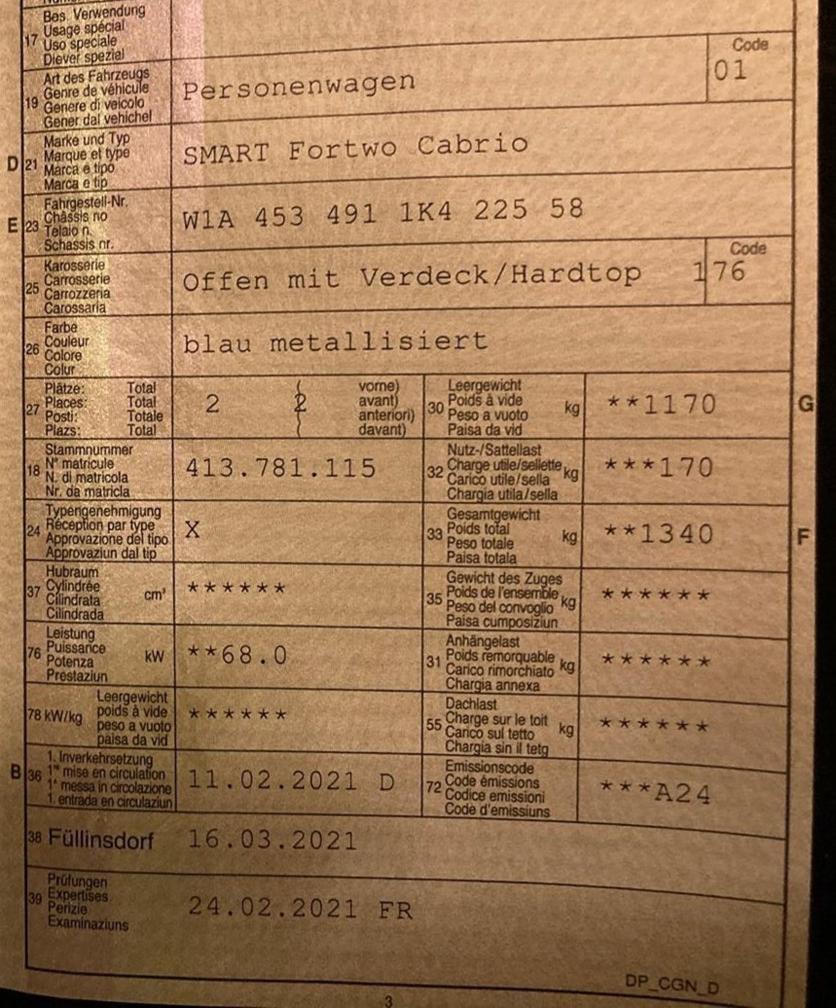 17
Bes. Verwendung
Usage spécial
Uso speciale
Diever spezial
19
Art des Fahrzeugs
Genre de véhicule
Genere di veicolo
Gener dal vehichel
Personenwagen
Code
01
D 21
Marke und Typ
Marque et type
Marca e tipo
Marca e tip
SMART Fortwo Cabrio
E 23
Fahrgestell-Nr.
Châssis no
Telaio n.
Schassis nr.
W1A 453 491 1K4 225 58
25
Karosserie
Carrosserie
Carrozzeria
Carossaria
Offen mit Verdeck/Hardtop
Code
176
26
Farbe
Couleur
Colore
Colur
blau metallisiert
27
Plätze: Total
Places: Total
Posti: Totale
Plazs: Total
2 2
vorne)
avant)
anteriori)
davant)
30
Leergewicht
Poids à vide
Peso a vuoto
Paisa da vid
kg
**1170
G
18
Stammnummer
N° matricule
N. di matricola
Nr. da matricla
413.781.115
32
Nutz-/Sattellast
Charge utile/sellette
Carico utile/sella
Chargia utila/sella
kg
***170
24
Typengenehmigung
Réception par type
Approvazione del tipo
Approvaziun dal tip
X
33
Gesamtgewicht
Poids total
Peso totale
Paisa totala
kg
**1340
F
37
Hubraum
Cylindrée
Cilindrata
Cilindrada
cm³
******
35
Gewicht des Zuges
Poids de l'ensemble
Peso del convoglio
Paisa cumposiziun
kg
******
76
Leistung
Puissance
Potenza
Prestaziun
kW
**68.0
31
Anhängelast
Poids remorquable
Carico rimorchiato
Chargia annexa
kg
******
78 kW/kg
Leergewicht
poids à vide
peso a vuoto
paisa da vid
******
55
Dachlast
Charge sur le toit
Carico sul tetto
Chargia sin il tetg
kg
******
B 36
1. Inverkehrsetzung
1re mise en circulation
1a messa in circolazione
1. entrada en circulaziun
11.02.2021 D
72
Emissionscode
Code émissions
Codice emissioni
Code d'emissiuns
***A24
38 Füllinsdorf 16.03.2021
39
Prüfungen
Expertises
Perizie
Examinaziuns
24.02.2021 FR
DP_CGN_D
3